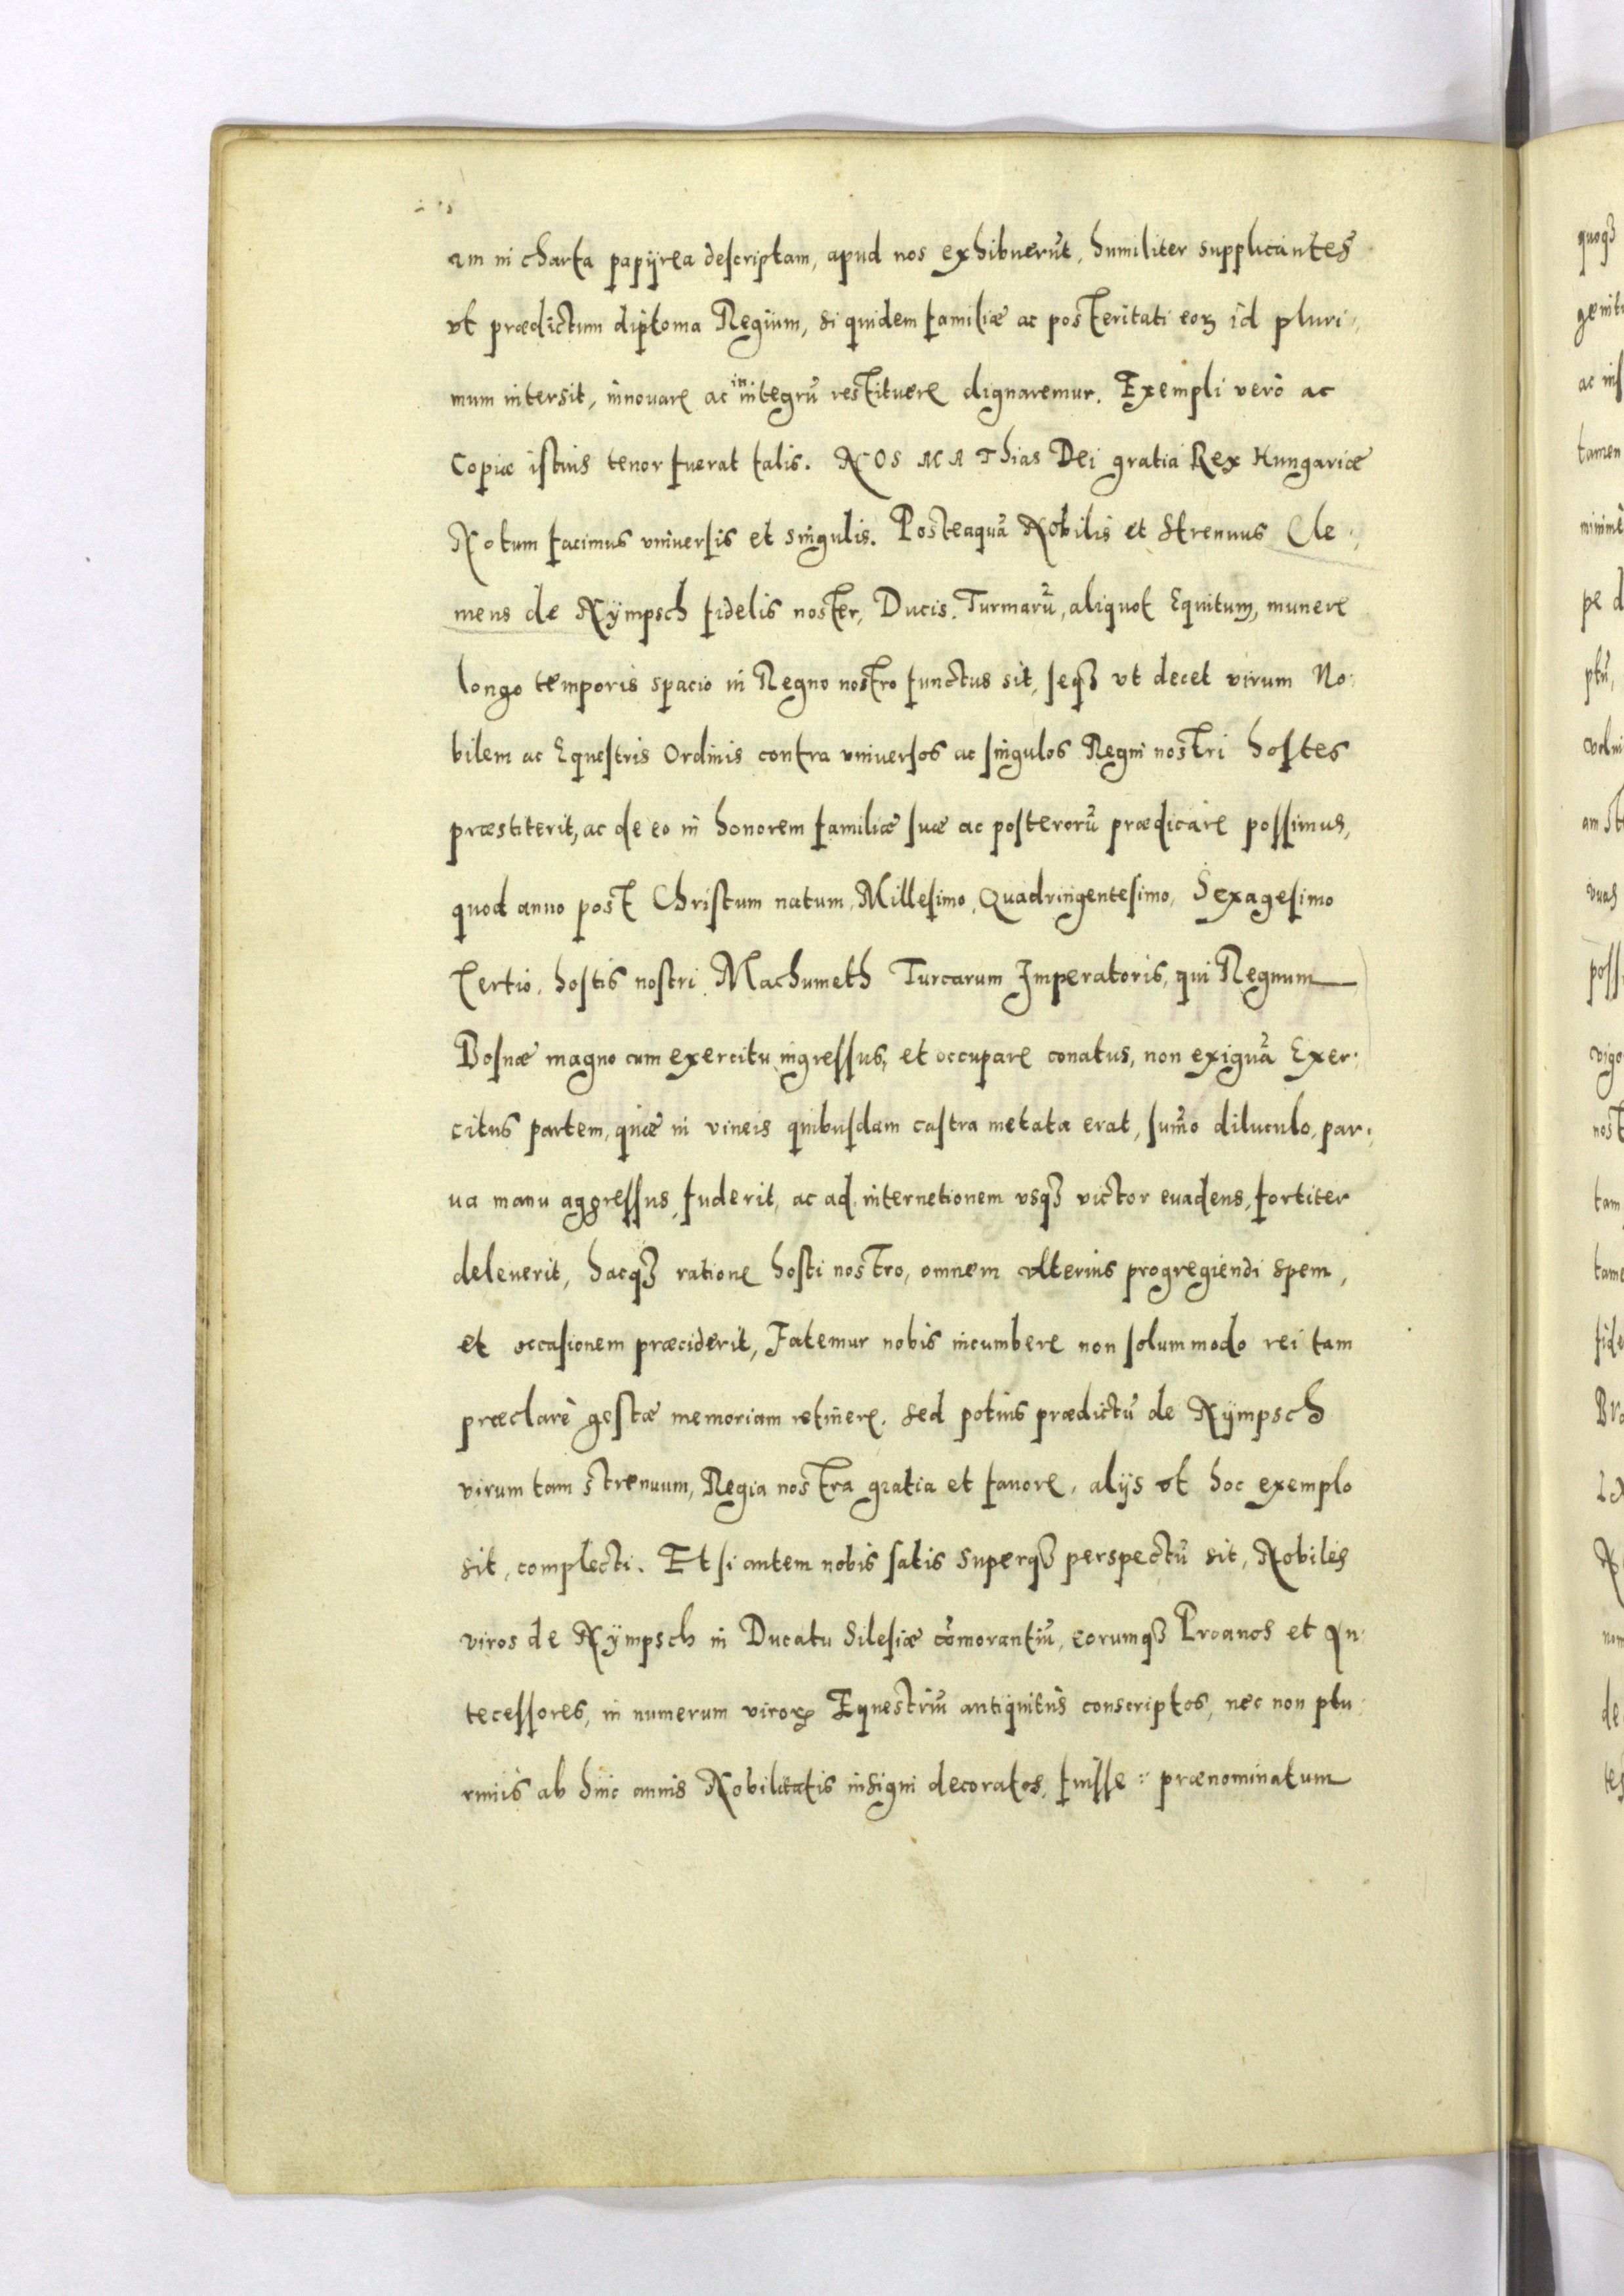 am in charta papÿrea descriptam, apud nos exhibuerūt, humiliter supplicantes
vt prædictum diploma Regium, siquidem familiæ ac posteritati eoꝝ id pluri,
mum intersit, innouare ac in integrū restituere dignaremur. Exempli verò ac
Copiæ istius tenor fuerat talis. NOS MAThias Dei gratia Rex Hungariæ
Notum facimus vniuersis et singulis. Posteaquā Nobilis et Strenuus Cle,
mens de Nÿmpsch fidelis noster, Ducis. Turmarū, aliquot Equitum, munere
longo temporis spacio in Regno nostro functus sit, seqꝫ vt decet virum No:
bilem ac Equestris Ordinis contra vniuersos ac singulos Regni nostri hostes
præstiterit, ac de eo in honorem familiæ suæ ac posterorū prædicare possimus,
quod anno post Christum natum, Millesimo, Quadringentesimo, Sexagesimo
Tertio, hostis nostri Machumeth Turcarum Imperatoris, qui Regnum
Bosnæ magno cum exercitu ingressus, et occupare conatus, non exiguā Exer:
citus partem, quæ in vineis quibusdam castra metata erat, sum̄o diluculo, par,
ua manu aggressus, fuderit, ac ad internetionem vsqꝫ victor euadens, fortiter
deleuerit, hacqꝫ ratione hosti nostro, omnem vlterius progregiendi spem,
et occasionem præciderit, Fatemur nobis incumbere non solummodo rei tam
præclarè gestæ memoriam retinere. sed potius prædictū de Nÿmpsch
virum tam strenuum, Regia nostra gratia et fauore, alijs vt hoc exemplo
sit, complecti. Et si autem nobis satis superqꝫ perspectū sit, Nobiles
viros de Nÿmpsch in Ducatu Silesiæ com̄orantiū, eorumqꝫ Proauos et An:
tecessores, in numerum viroꝝ Equestriū antiquitùs conscriptos, nec non plu:
rimis ab hinc annis Nobilitatis insigni decoratos, fuisse :: prænominatum